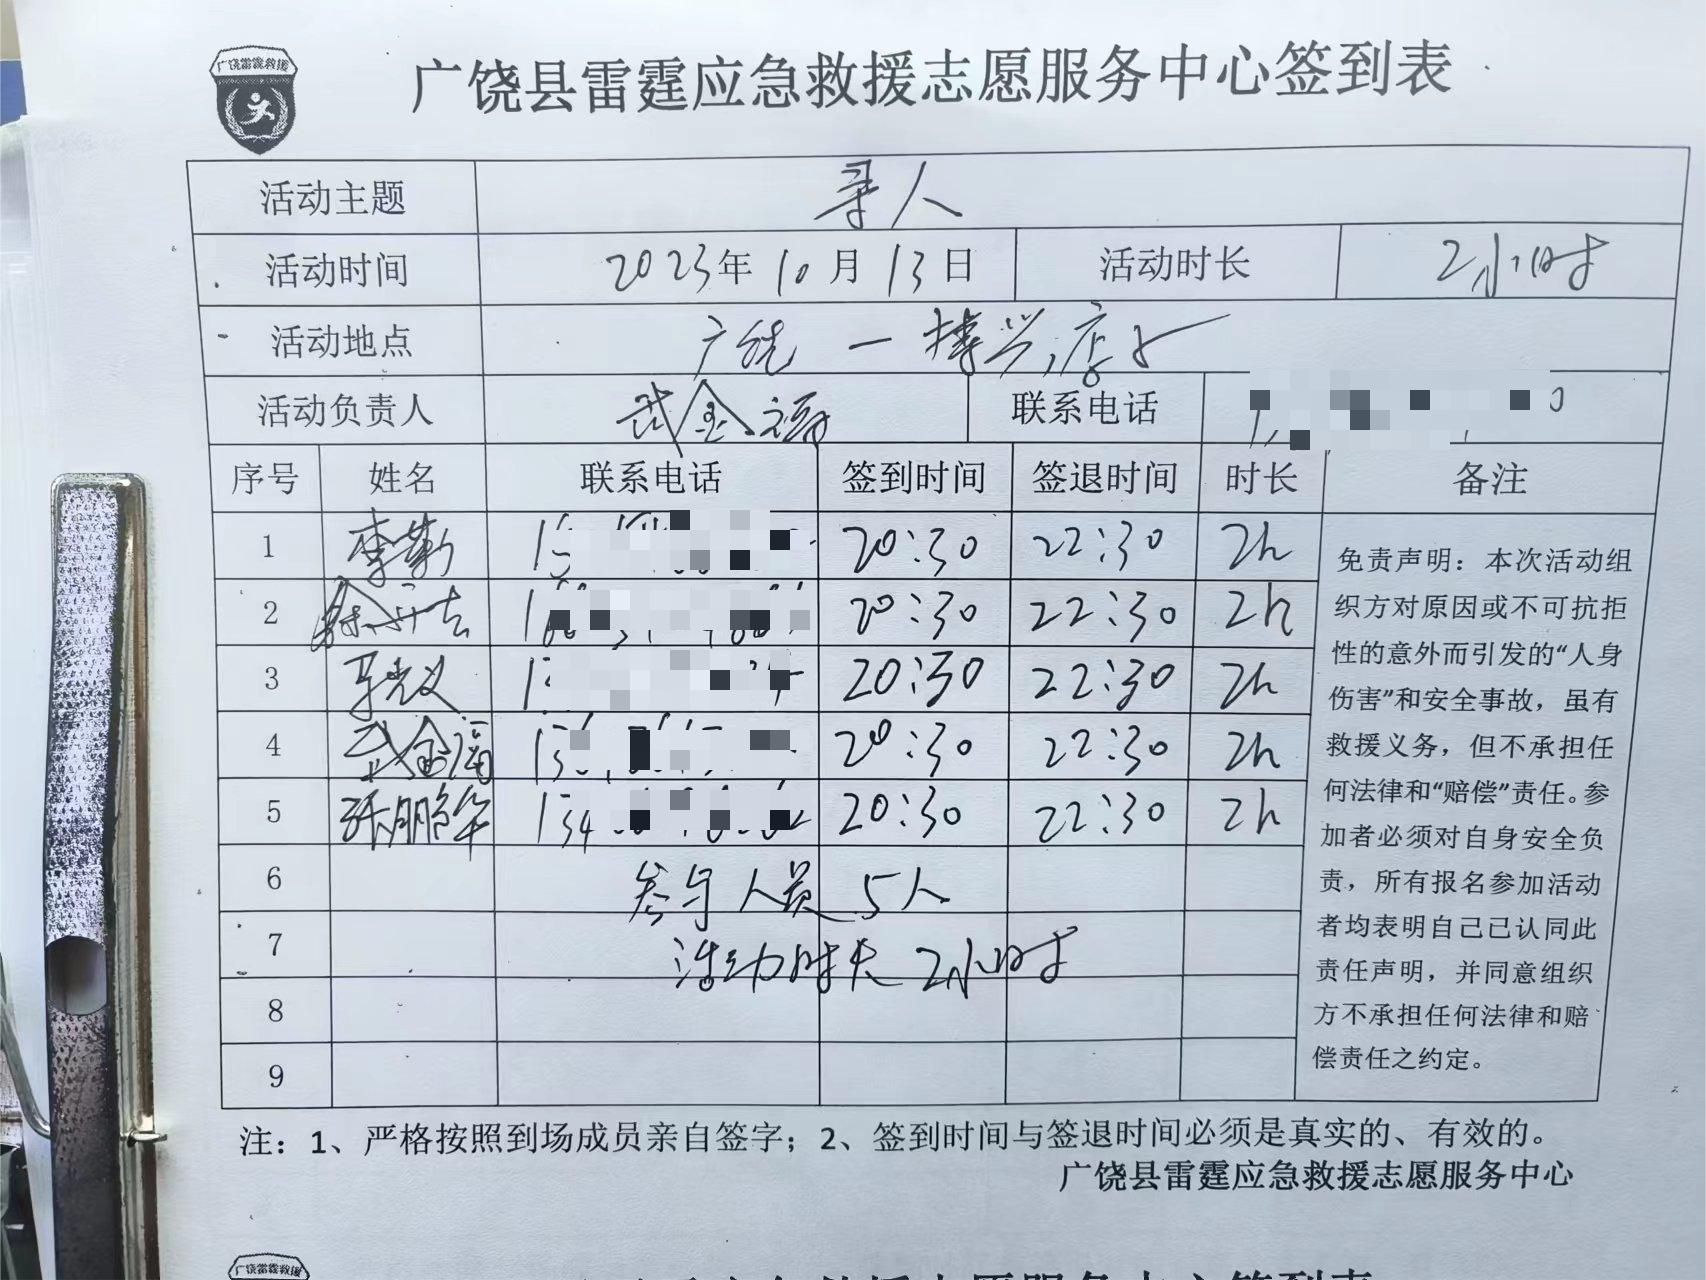 广饶雷霆救援
广饶县雷霆应急救援志愿服务中心签到表
活动主题 寻人
活动时间 2023年10月13日 活动时长 2小时
活动地点 广饶一博兴,店子
活动负责人 武金福 联系电话
序号 姓名 联系电话 签到时间 签退时间 时长 备注
1 李勤 20:30 22:30 2h
2 20:30 22:30 2h
3 马光义 20:30 22:30 2h
4 武金福 20:30 22:30 2h
5 张鹏华 134 20:30 22:30 2h
6 参与人员 5人
7 活动时长 2小时
8
9
免责声明：本次活动组
织方对原因或不可抗拒
性的意外而引发的“人身
伤害”和安全事故，虽有
救援义务，但不承担任
何法律和“赔偿”责任。参
加者必须对自身安全负
责，所有报名参加活动
者均表明自己已认同此
责任声明，并同意组织
方不承担任何法律和赔
偿责任之约定。
注：1、严格按照到场成员亲自签字；2、签到时间与签退时间必须是真实的、有效的。
广饶县雷霆应急救援志愿服务中心
广饶雷霆救援